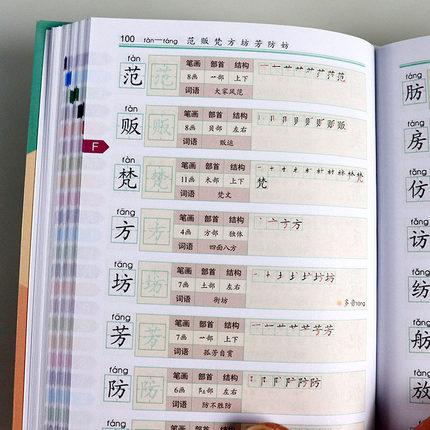 100 fàn—fáng 范贩梵方坊芳防妨
fàn
范 范 笔画 部首 结构
8画 艹部 上下
词语 大家风范
fàn
贩 贩 笔画 部首 结构
8画 贝部 左右
词语 贩运
F
fàn
梵 梵 笔画 部首 结构
11画 木部 上下
梵
词语 梵文
fāng
方 方 笔画 部首 结构
4画 方部 独体
词语 四面八方
fāng
坊 坊 笔画 部首 结构
7画 土部 左右
词语 街坊
多音fáng
fāng
芳 芳 笔画 部首 结构
7画 艹部 上下
词语 孤芳自赏
fáng
防 防 笔画 部首 结构
6画 阝部 左右
词语 防不胜防
fáng
笔画 部首 结构
肪
房
仿
访
纺
舫
放